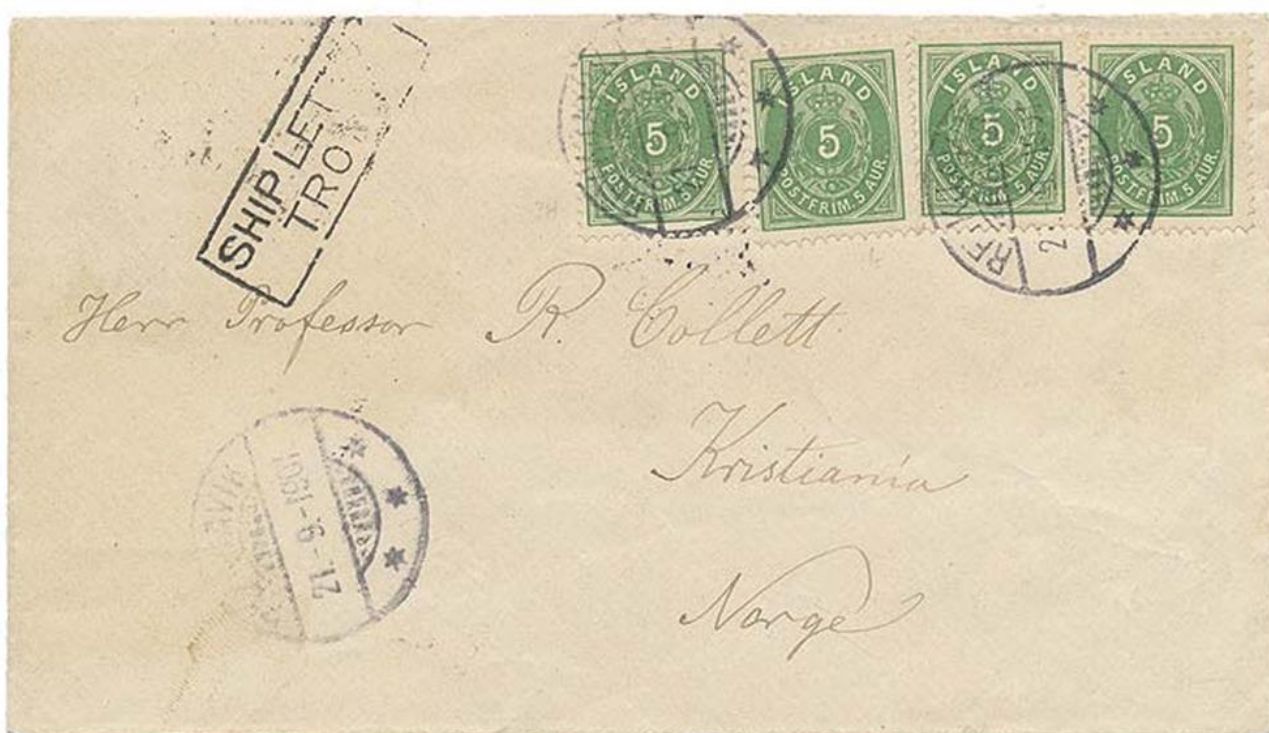 SHIP LET
TRO
ISLAND
5
POSTFRIM. 5 AUR.
ISLAND
5
POSTFRIM. 5 AUR.
ISLAND
5
POSTFRIM. 5 AUR.
ISLAND
5
POSTFRIM. 5 AUR.
Herr Professor R. Collett
Kristiania
Norge
21-9-1901